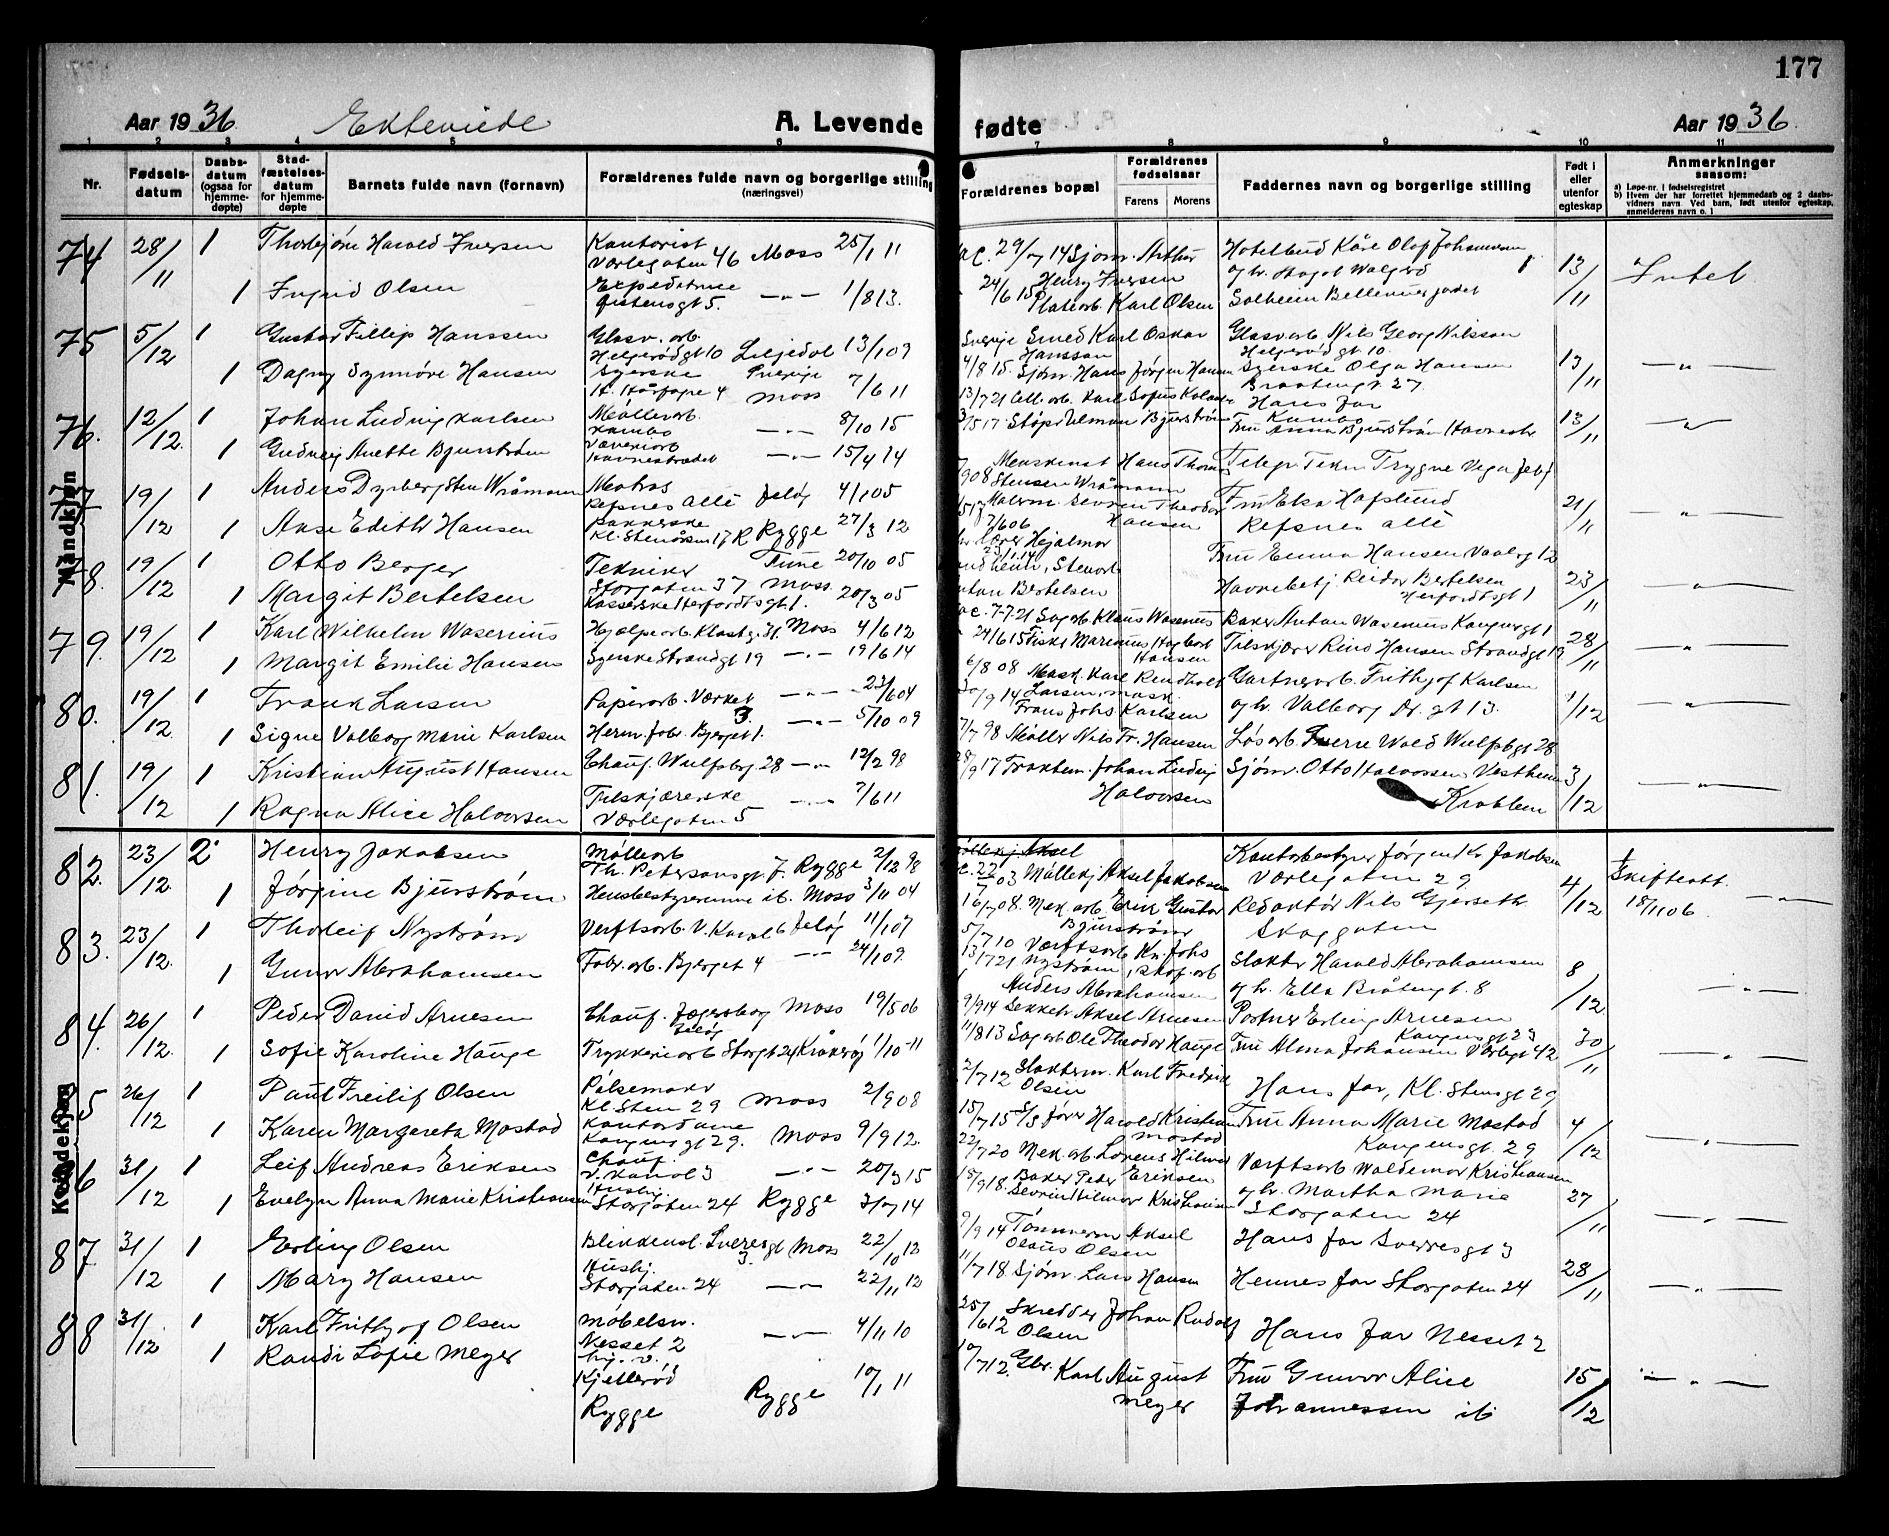 177
Aar 1936. Ektevidde A. Levende
1 2 3 4 5 6
Nr. Fødselsdatum Daabsdatum (ogsaa for hjemmedøpte) Stadfæstelsesdatum for hjemmedøpte Barnets fulde navn (fornavn) Forældrenes fulde navn og borgerlige stilling (næringsvei)
74 28/11 1 Thorbjørn Harald Iversen Kontorist Værlegaten 46 Moss 25/1 11
1 Ingrid Olsen Expeditrice gt 5. —"— 1/8 13.
75 5/12 1 Gustav Fillip Hanssen Glasv. arb. Helgerødgt 10 Liljedal Sverige 13/1 09
1 Dagny Synnøve Hansen Syerske H. Hårfagre 4 Moss 7/6 11
76. 12/12. 1 Johan Ludvig Karlsen Møllearb. Kambo —"— 8/10 15
1 Gudveig Anette Bjurstrøm Væveriarb Havnestrædet —"— 15/4 14
Mandkjøn
77 19/12 1 Anders Dyrberg Sten Wråmann Matros Refsnes Allé Jeløy 4/1 05
1 Aase Edith Hansen Kl. Stenåsen 17 R Rygge 27/3 12
78. 19/12 1 Otto Berger Tekniker Storgaten 37 Tune 20/10 05
1 Margit Bertelsen Kassererske Herfordtsgt 1. Moss 20/3 05
79. 19/12 1 Karl Wilhelm Wasenius Hjelpearb. Klostergt. 31. Moss 4/6 12
1 Margit Emilie Hansen Syerske Strandgt 19 —"— 19/6 14
80. 19/12. 1 Frank Larsen Papirarb. Værket 3. —"— 23/6 04
1 Signe Valborg Marie Karlsen Herm. fabr. Bjerget 1. —"— 5/10 09
81. 19/12 1 Kristian August Hansen Chauf. Wulfsbg. 28 —"— 12/2 98
1 Ragna Alice Halvorsen Tilskjærerske Værlegaten 5 —"— 7/6 11
82. 23/12. 2. Henry Jakobsen Møllearb Th. Petersonsgt 7. Rygge 2/12 98
1 Jørgine Bjurstrøm Husbestyrerinne ib. Moss 3/11 04
83. 23/12. 1 Thorleif Nystrøm Verftsarb. V. Kanal 6 Jeløy 11/1 07
1 Gunvor Abrahamsen Fabr. arb. Bjerget 4 —"— 24/1 09.
84. 26/12. 1 Peder David Arnesen Chauf. Jægersborg Jeløy Moss 19/5 06
1 Sofie Karoline Hauge Trykkeriarb Storgt 24 Kråkerøy 1/10 11
Kvindekjøn
5 26/12 1 Paul Freilif Olsen Pølsemaker Kl. Sten 29 Moss 2/9 08
1 Karen Margareta Mostad Kontordame Kongensgt 29. Moss 9/9 12.
6 31/12 1 Leif Andreas Eriksen Chauf. V. Kanal 3 —"— 20/3 15
1 Evelyn Anna Marie Kristiansen Husbj. Storgaten 24 Rygge 3/7 14
87. 31/12 1 Erling Olsen Blikkensl. Sverresgt 3. Moss 22/10 12
1 Mary Hansen Husbj. Storgaten 24 —"— 22/11 12
88 31/12 1 Karl Frithjof Olsen Møbelsn. Nesset 2 —"— 4/11 10
1 Randi Sofie Meyer Kjellerød Rygge Rygge 10/1 11
fødte Aar 1936.
7 8 9 10 11
Forældrenes bopæl Forældrenes fødselsaar Farens Morens Faddernes navn og borgerlige stilling Født i eller utenfor egteskap Anmerkninger saasom:
a) Løpe-nr. i fødselsregistret
b) Hvem der har forrettet hjemmedaab og 2 daabsvidners navn. Ved barn, født utenfor egteskap, anmelderens navn o. l
29/7 14 Sjøm. Arthur Henry Iversen Hotelbud Kåre Olaf Johansen 13/11 Intet
24/6 15 Platearb. Karl Olsen Solheim Bellevue
Sverige Smed Karl Oskar Hansson Glasarb. Nils Georg Nilsson Helgerødgt 10. 13/11 —"—
4/8 15. Sjøm. Hans Jørgen Hansen Syerske Olga Hansen Braatengt. 27
13/7 21 Hans far Kambo 13/11 —"—
3/5 17 Bjurstrøm Fru Anna Bjurstrøm Havnestr
Hans Thomas Stensen Wråmann Telegr. Tekn. Trygve Vega 21/11 —"—
Malerm. Severin Theodor Hansen Fru Elsa Hafslund Refsnes allé
Hjalmar Fru Emma Hansen Vaalergt 12 23/11 —"—
Bertelsen Havnebetj Reidar Bertelsen Herfordtsgt 1
7-7-21 Sagarb. Klaus Wasenius Baker Anton Wasenius Kongensgt 1 28/11 —"—
24/6 15 Fisker Marinius Hagbart Hansen Tilskjærer Rind Hansen Strandgt 19
6/8 08 Mask. Karl Reinholt Larsen, mask. Gartnerarb. Frithjof Karlsen 1/12 —"—
9/14 Frans Johs Karlsen og hr. Valborg Dr. gt 13.
7/7 98 Møller Nils Fr. Hansen Løsarb. Sverre Wold Wulfsbgt 28 3/12 —"—
28/9 17 Traktem. Johan Ludvig Halvorsen Sjøm. Otto Halvorsen Vestheim Krabben
Møllekj Aksel Jakobsen Kontorbestyrer Jørgen Kr. Jakobsen Værlegaten 29 4/12 Skifteatt. 18/11 06. —"—
16/7 08. Mek. arb. Erik Gustav Bjurstrøm Redaktør Nils Gjerseth Skoggaten
5/7 10 Værftsarb Kr. Johs Nystrøm, skof. arb Slakter Harald Abrahamsen 8/12 —"—
Anders Abrahamsen og hr. Ella Bråtengt. 8
9/9 14 Sekkebr Aksel Arnesen Postmes Erling Arnesen Kongensgt 23 30/11 —"—
11/8 13 Sag arb Ole Theodor Hauge Fru Alma Johansen Værlegt 42
2/7 12 Slakterm. Karl Fredrik Olsen Hans far, Kl. Stensgt 29 4/12 —"—
15/7 15 S/S fører Harald Kristian Mostad Fru Anna Marie Mostad Kongensgt. 29
22/7 20 Mek. arb. Lorens Hilmar Eriksen Værftsarb Waldemar Kristiansen 27/11 —"—
18/9 18. Baker Peder Severin Hilmar Kristiansen og hr. Martha Marie Storgaten 24
9/9 14 Tømmerm Aksel Olaus Olsen Hans far Sverresgt 3 28/11 —"—
11/7 18. Sjøm. Lars Hansen Hennes far Storgaten 24
25/6 12 Skredder Johan Rudolf Olsen Hans far Nesset 2 15/12 —"—
10/7 12. Gbr. Karl August Meyer Fru Gunvor Alice Johannessen ib